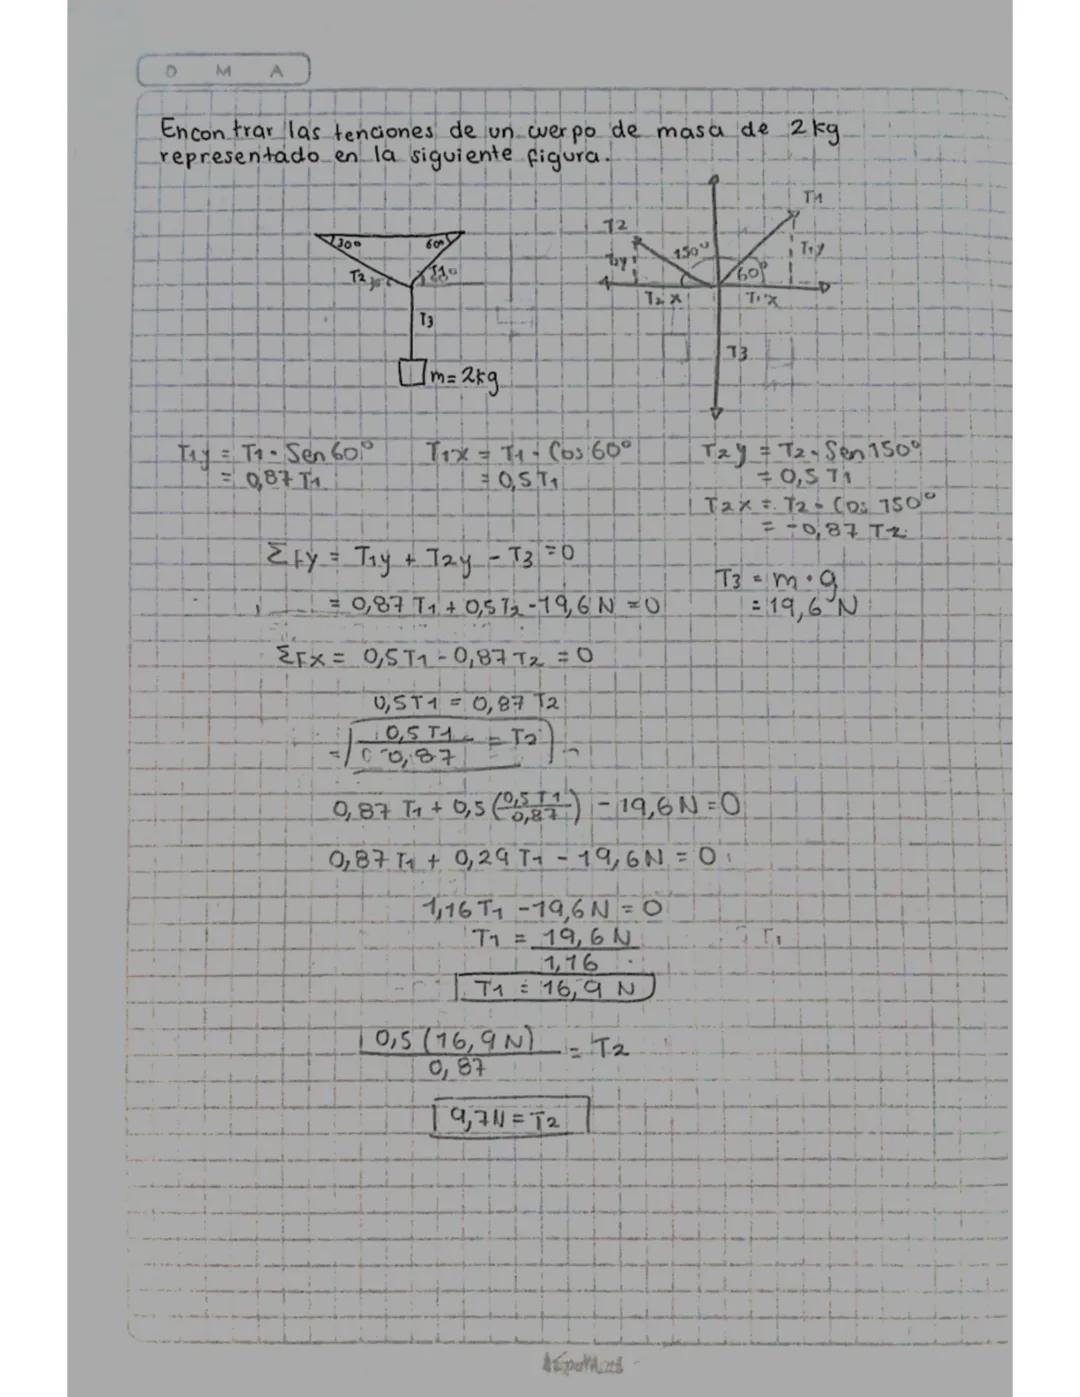 D M A
Encontrar las tenciones de un cuerpo de masa de 2kg
representado en la siguiente figura.
30° 60°
T2 T1
T3
m=2kg
T2 T1
T2y 150° 60° T1y
T2x T1x
T3
T1y = T1 · Sen 60° T1x = T1 · Cos 60° T2y = T2 · Sen 150°
= 0,87 T1 = 0,5 T1 = 0,5 T1
T2x = T2 · Cos 150°
= -0,87 T2
ΣFy = T1y + T2y - T3 = 0
T3 = m · g
= 0,87 T1 + 0,5 T2 - 19,6 N = 0 = 19,6 N
ΣFx = 0,5 T1 - 0,87 T2 = 0
0,5 T1 = 0,87 T2
= 0,5 T1 / 0,87 = T2
0,87 T1 + 0,5 (0,5 T1 / 0,87) - 19,6 N = 0
0,87 T1 + 0,29 T1 - 19,6 N = 0
1,16 T1 - 19,6 N = 0
T1 = 19,6 N / 1,16
T1 = 16,9 N
0,5 (16,9 N) / 0,87 = T2
9,7 N = T2